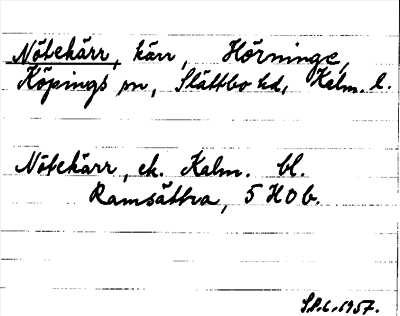 Nötekärr, kärr, Hörninge,
Köpings sn, Slättbo hd, Kalm. l.
Nötekärr, ek. Kalm. bl.
Ramsättra, 5 H O b.
1957.